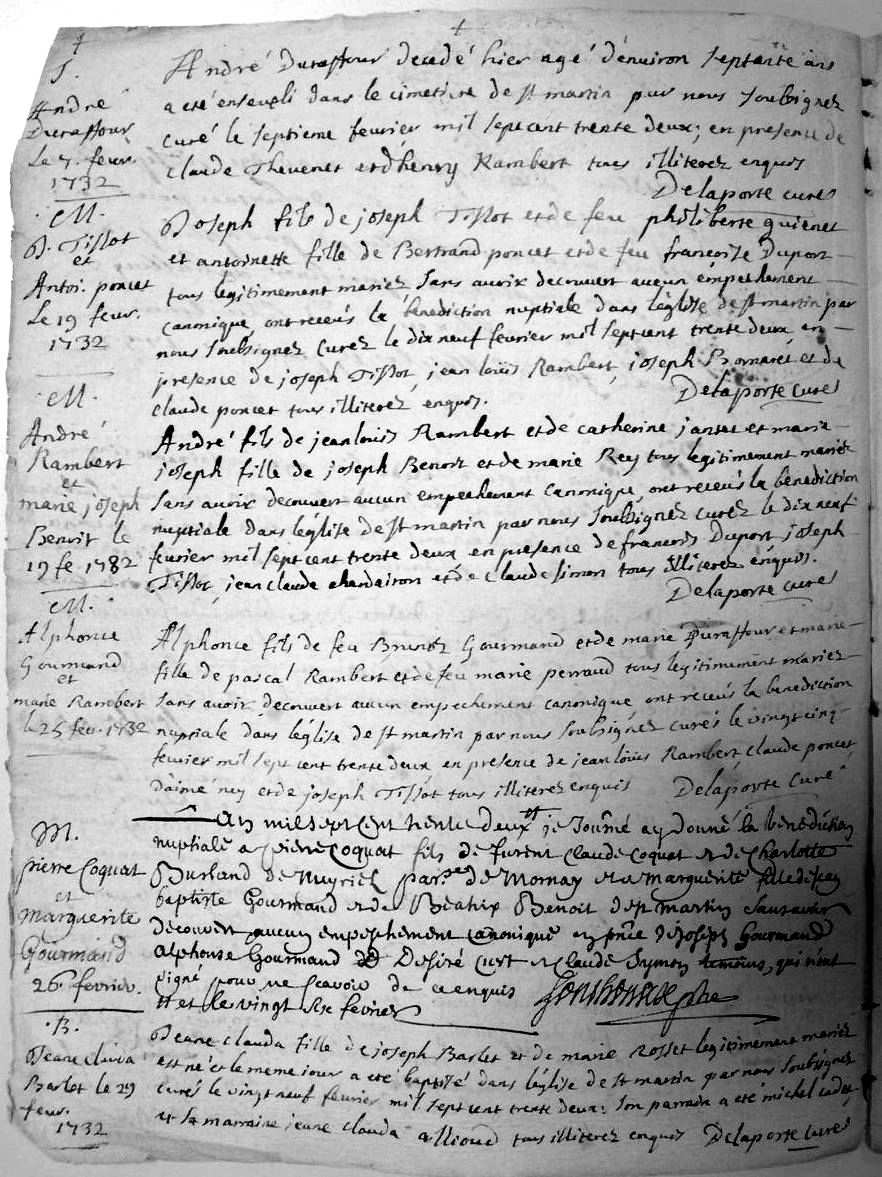 S.
André
Duraffour
Le 7. feuvr.
1732
André Duraffour decedé hier agé d'enuiron septante ans
a eté enseueli dans le cimetiere de st martin par nous soubsignez
curé le septieme feurier mil sept cent trente deux; en presence de
claude Theuenet et d'henry Rambert tous illiterez enquis
Delaporte curé
M.
J. Tissot
et
Antoi. poncet
Le 19 feur.
1732
Joseph fils de joseph Tissot et de feu philiberte quienet
et antoinette fille de Bertrand poncet et de feu francoise Dupont
tous legitimement mariez sans auoir decouuert aucun empechement
canonique, ont receus la benediction nuptiale dans léglise de st martin par
nous soubsignez curez le dix neuf feurier mil sept cent trente deux, en
presence de joseph Tissot, jean loüis Rambert, joseph Bornaret et de
claude poncet tous illiterez enquis.
Delaporte curé
M.
André
Rambert
et
marie joseph
Benoit le
19 fe 1732
André fils de jean louis Rambert et de catherine jantet et marie
joseph fille de joseph Benoit et de marie Rey tous legitimement mariez
sans auoir decouuert aucun empechement canonique, ont receus la benediction
nuptiale dans léglise de st martin par nous soubsignez curez le dix neuf
feurier mil sept cent trente deux en presence de francois Dupont joseph
Tissot, jean claude chardairon et de claude simon tous illiterez enquis.
Delaporte curé
M.
Alphonce
Gourmand
et
marie Rambert
le 25 feu. 1732
Alphonce fils de feu Gourmand et de marie Duraffour et marie
fille de pascal Rambert et de feu marie perraud tous legitimement mariez
sans auoir decouuert aucun empechement canonique ont receus la benediction
nuptiale dans léglise de st martin par nous soubsignez curés le vingt cinq
feurier mil sept cent trente deux en presence de jean loüis Rambert, claude poncet
daimé ney et de joseph Tissot tous illiterez enquis Delaporte curé
M.
pierre Coquat
et
Marguerite
Gourmand
26e feurier.
an mil sept cent trente deux je ay donné la benediction
nuptiale a pierre Coquat fils de claude coquat et de Charlotte
Burland de Nuyriel par.se de Mornay et a Marguerite fille de jean
baptiste Gourmand et de Béatrix Benoit de st Martin sans auoir
decouuert aucun empeschement canonique en pnce de joseph Gourmand
alphonse Gourmand Desiré Curt et Claude Symon temoins, qui n'ont
signé pour ne scavoir de ce enquis
et le vingt six feurier
.B.
Jeane clauda
Barlet le 29
feur.
1732
Jeane clauda fille de joseph Barlet et de marie Rosset legitimement mariez
est né et le meme jour a eté baptisé dans léglise de st martin par nous soubsignez
curés le vingt neuf feurier mil sept cent trente deux: son parrain a eté michel
et sa marraine jeane clauda allioud tous illiterez enquis Delaporte curé